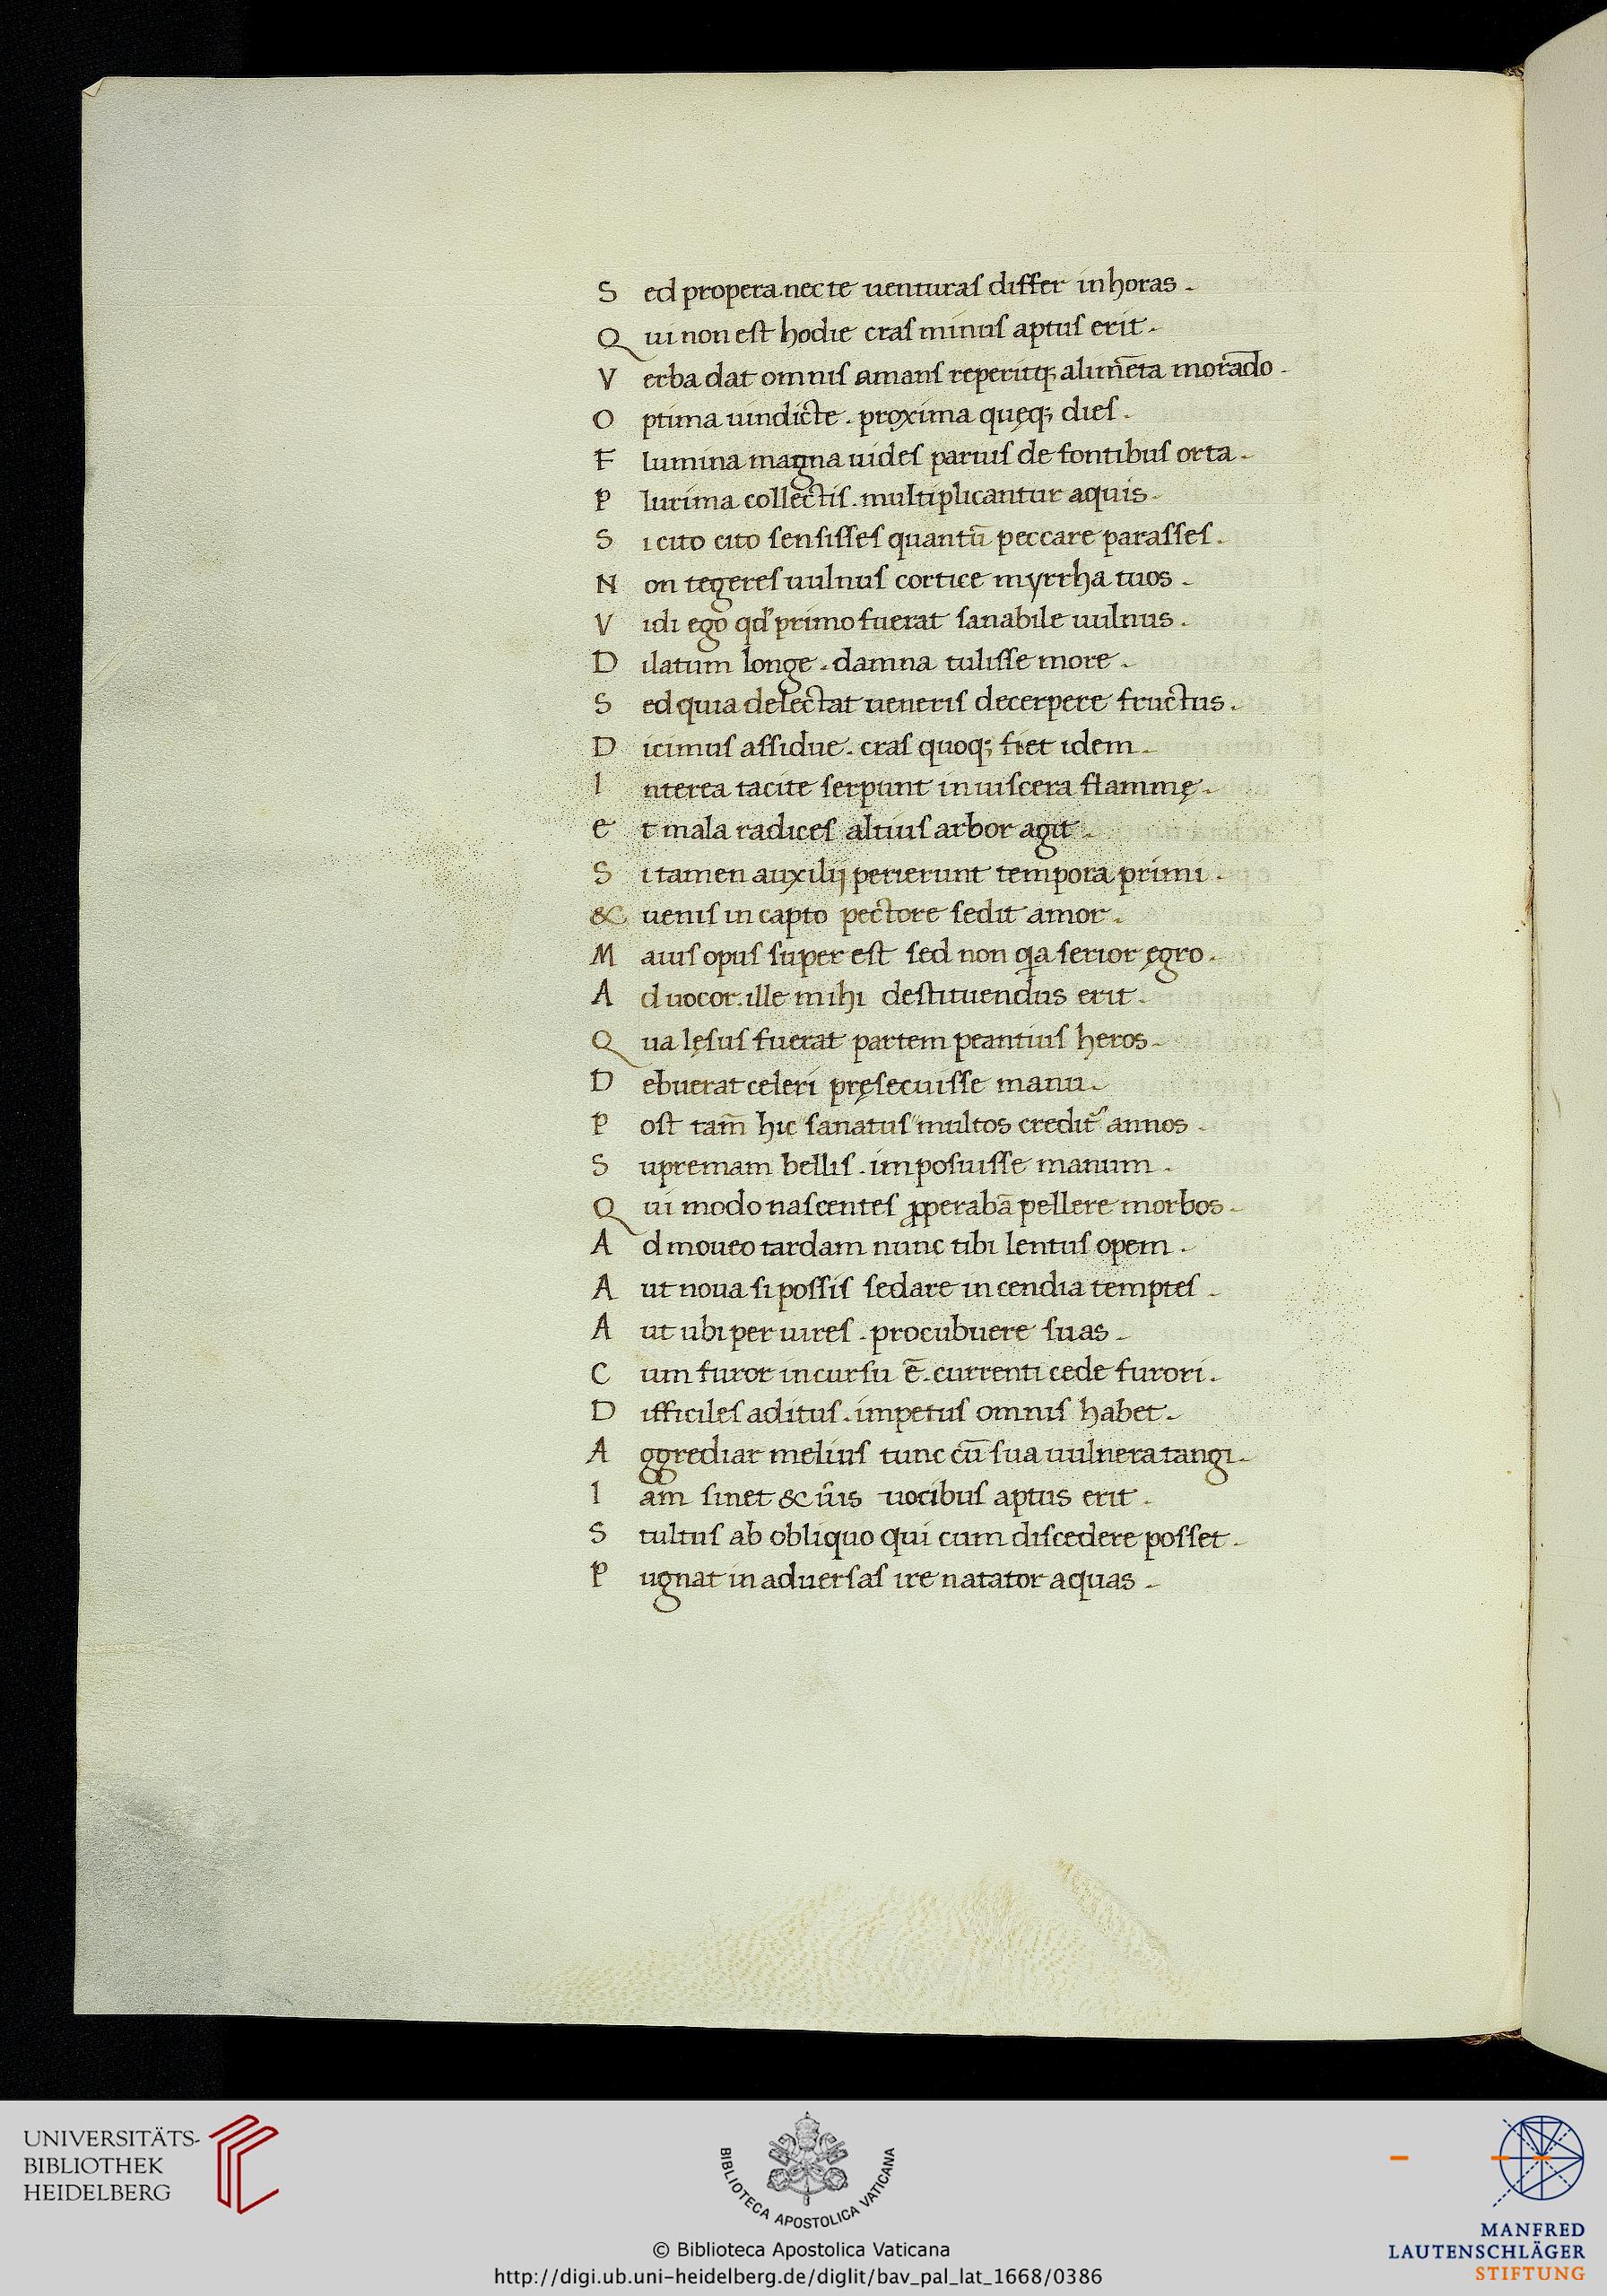 S ed propera nec te uenturas differ in horas .
Q ui non est hodie cras minus aptus erit .
V erba dat omnis amans reperitq; alimēta morādo .
O ptima uindicte . proxima quęq; dies .
F lumina magna uides paruis de fontibus orta .
P lurima collectis . multiplicantur aquis .
S i cito cito sensisses quantū peccare parasses .
N on tegeres uulnus cortice myrrha tuos .
V idi ego qđ primo fuerat sanabile uulnus .
D ilatum longe . damna tulisse more .
S ed quia delectat ueneris decerpere fructus .
D icimus assidue . cras quoq; fiet idem .
I nterea tacite serpunt in uiscera flammę .
e t mala radices altius arbor agit .
S i tamen auxilij perierunt tempora primi .
& uenis in capto pectore sedit amor .
M aius opus super est sed non qa serior ęgro .
A d uocor . ille mihi destituendus erit .
Q ua lęsus fuerat partem peantius heros .
D ebuerat celeri pręsecuisse manu .
P ost tam̄ hic sanatus multos credit᷑ annos .
S upremam bellis . imposuisse manum .
Q ui modo nascentes ꝓperabā pellere morbos .
A d moueo tardam nunc tibi lentus opem .
A ut noua si possis sedare in cendia temptes .
A ut ubi per uires . procubuere suas .
C um furor in cursu ē . currenti cede furori .
D ifficiles aditus . impetus omnis habet .
A ggrediar melius tunc cū sua uulnera tangi .
I am sinet & ūis uocibus aptus erit .
S tultus ab obliquo qui cum discedere posset .
P ugnat in aduersas ire natator aquas .
UNIVERSITÄTS-
BIBLIOTHEK
HEIDELBERG
BIBLIOTECA APOSTOLICA VATICANA
© Biblioteca Apostolica Vaticana
http://digi.ub.uni-heidelberg.de/diglit/bav_pal_lat_1668/0386
MANFRED
LAUTENSCHLÄGER
STIFTUNG